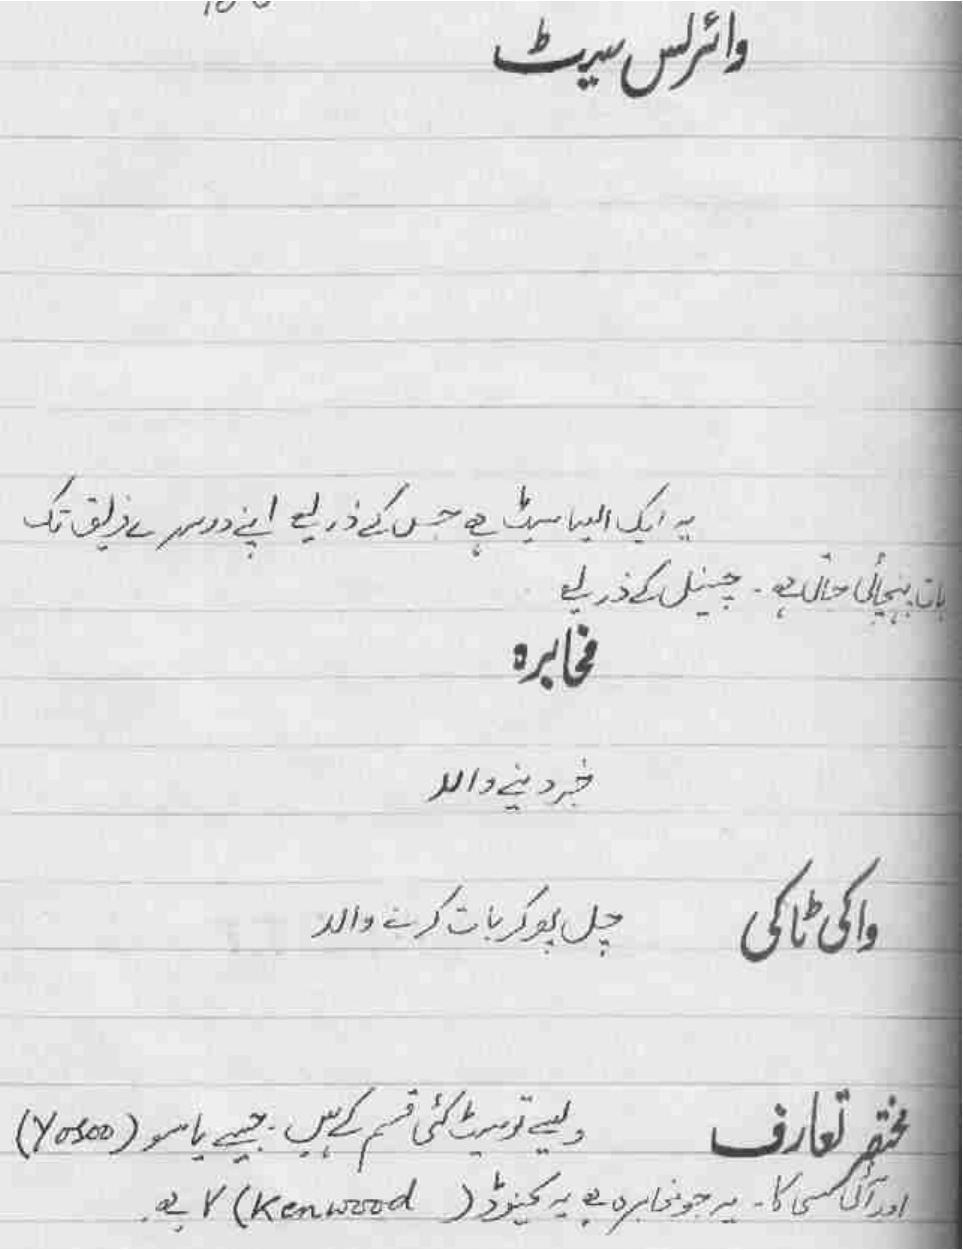 وائرلس سیٹ
یہ ایک ایسا سیٹ ہے جس کے ذریعے اپنے دوسرے فریق تک
بات پہنچائی جاتی ہے ۔ چینل کے ذریعے
مخابرہ
خبر دینے والہ
واکی ٹاکی چل پھو کر بات کرنے والہ
مختصر تعارف ویسے تو سیٹ کئی قسم کے ہیں ۔ جیسے یاسو (Yosoo)
اور آئی کسی کا ۔ یہ جو مخابرہ ہے یہ کینوڈ (Kenwood) کا ہے ۔